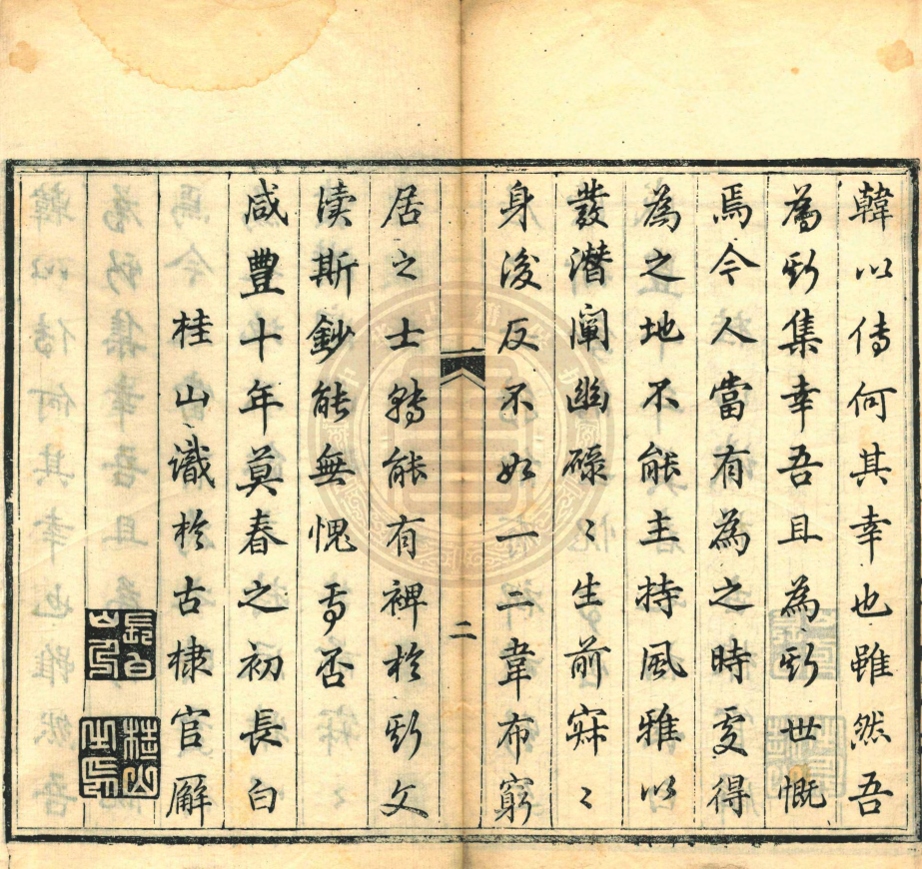 韓以傳何其幸也雖然吾
為斯集幸吾且為斯世慨
焉今人當有為之時處得
為之地不能主持風雅以
發潛闡幽碌〻生前寂〻
身後反不如一二韋布窮
二
居之士轉能有裨於斯文
讀斯鈔能無愧否
咸豐十年莫春之初長白
桂山識於古棣官廨
長白山
桂山之印